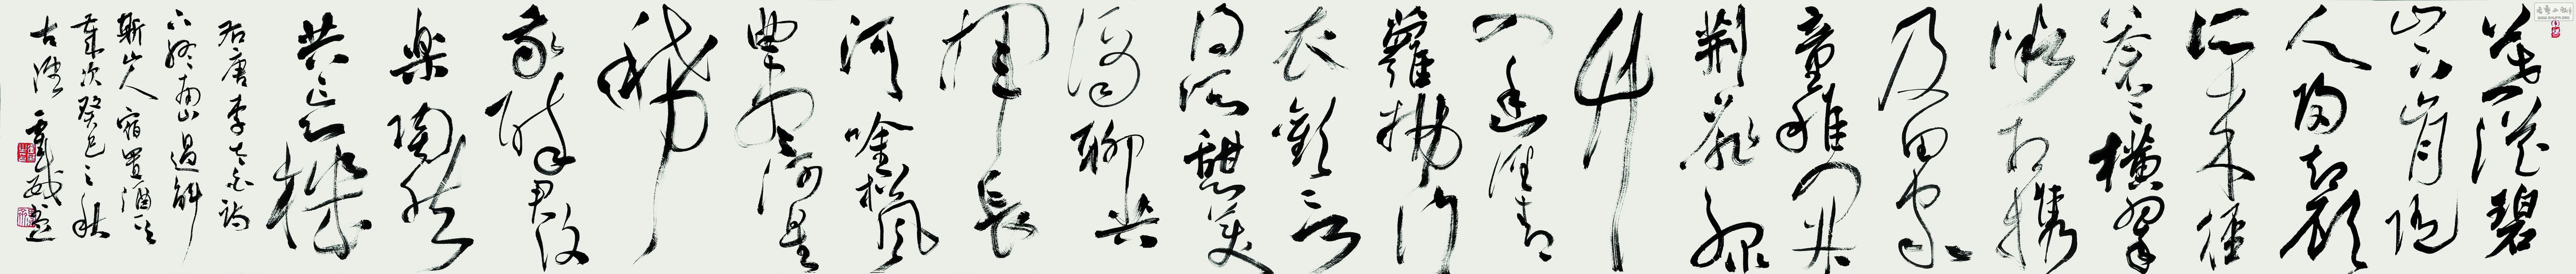 暮從碧
山下山月隨
人歸却顧
所來徑
蒼蒼橫翠
微相攜
及田家
童稚開
荆扉綠
竹
入幽徑青
蘿拂行
衣歡言
得所憩美
酒聊共
揮長
謌唫松風
曲盡河星
稀
我醉君復
樂陶然
共忘機
右唐李太白詩
下終南山過斛
斯山人宿置酒
歲次癸巳之秋